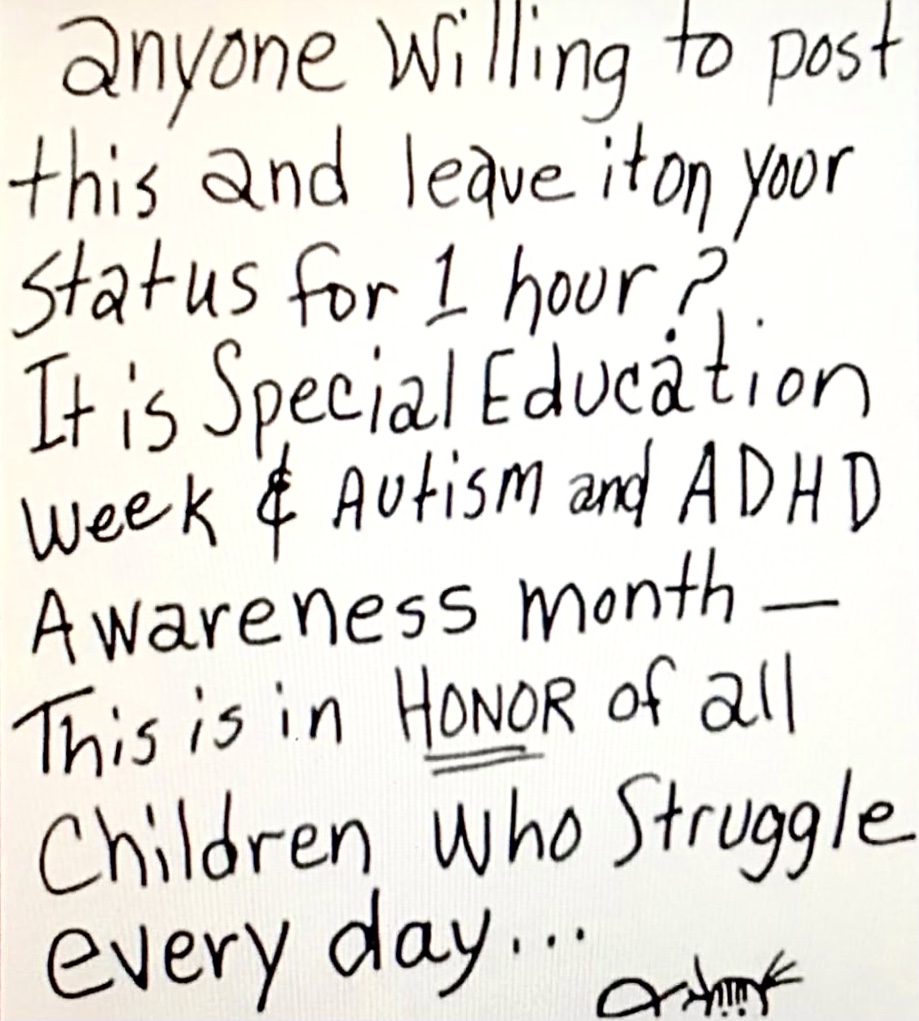 anyone Willing to post
this and leave it on your
Status for 1 hour?
It is Special Education
Week & Autism and ADHD
Awareness month —
This is in HONOR of all
Children who Struggle
every day...